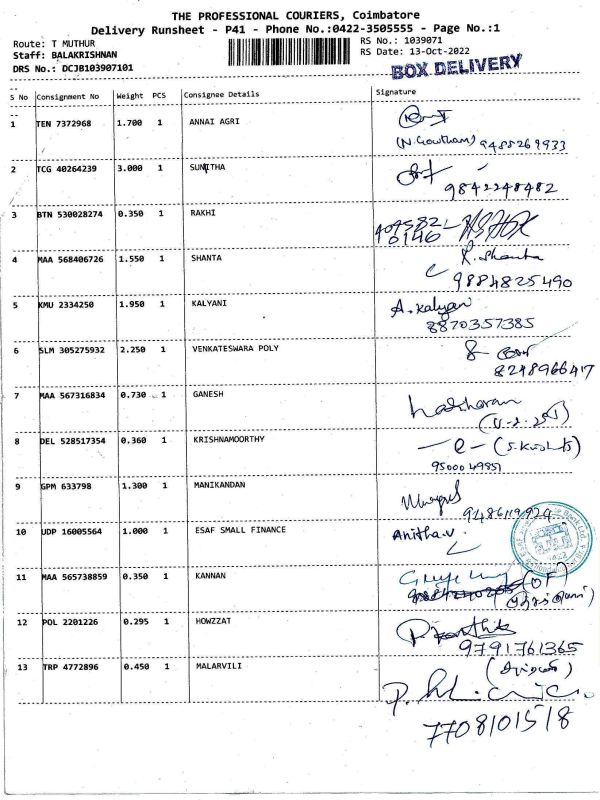 THE PROFESSIONAL COURIERS, Coimbatore
Delivery Runsheet - P41 - Phone No.:0422-3505555 - Page No.:1
Route: T MUTHUR RS No.: 1039071
Staff: BALAKRISHNAN RS Date: 13-Oct-2022
DRS No.: DCJB103907101
BOX DELIVERY
S No Consignment No Weight PCS Consignee Details Signature
1 TEN 7372968 1.700 1 ANNAI AGRI
(N.Gowtham) 9488269933
2 TCG 40264239 3.000 1 SUNITHA
9842248482
3 BTN 530028274 0.350 1 RAKHI
0146
4 MAA 568406726 1.550 1 SHANTA K. Shanta
9884825490
5 KMU 2334250 1.950 1 KALYANI A. Kalyani
8870357385
6 SLM 305275932 2.250 1 VENKATESWARA POLY
8248966417
7 MAA 567316834 0.730 1 GANESH
8 DEL 528517354 0.360 1 KRISHNAMOORTHY
9500049851
9 GPM 633798 1.300 1 MANIKANDAN
9486119924
10 UDP 16005564 1.000 1 ESAF SMALL FINANCE Anitha.v.
11 MAA 565738859 0.350 1 KANNAN
12 POL 2201226 0.295 1 HOWZZAT
9791761365
13 TRP 4772896 0.450 1 MALARVILI
7708101518